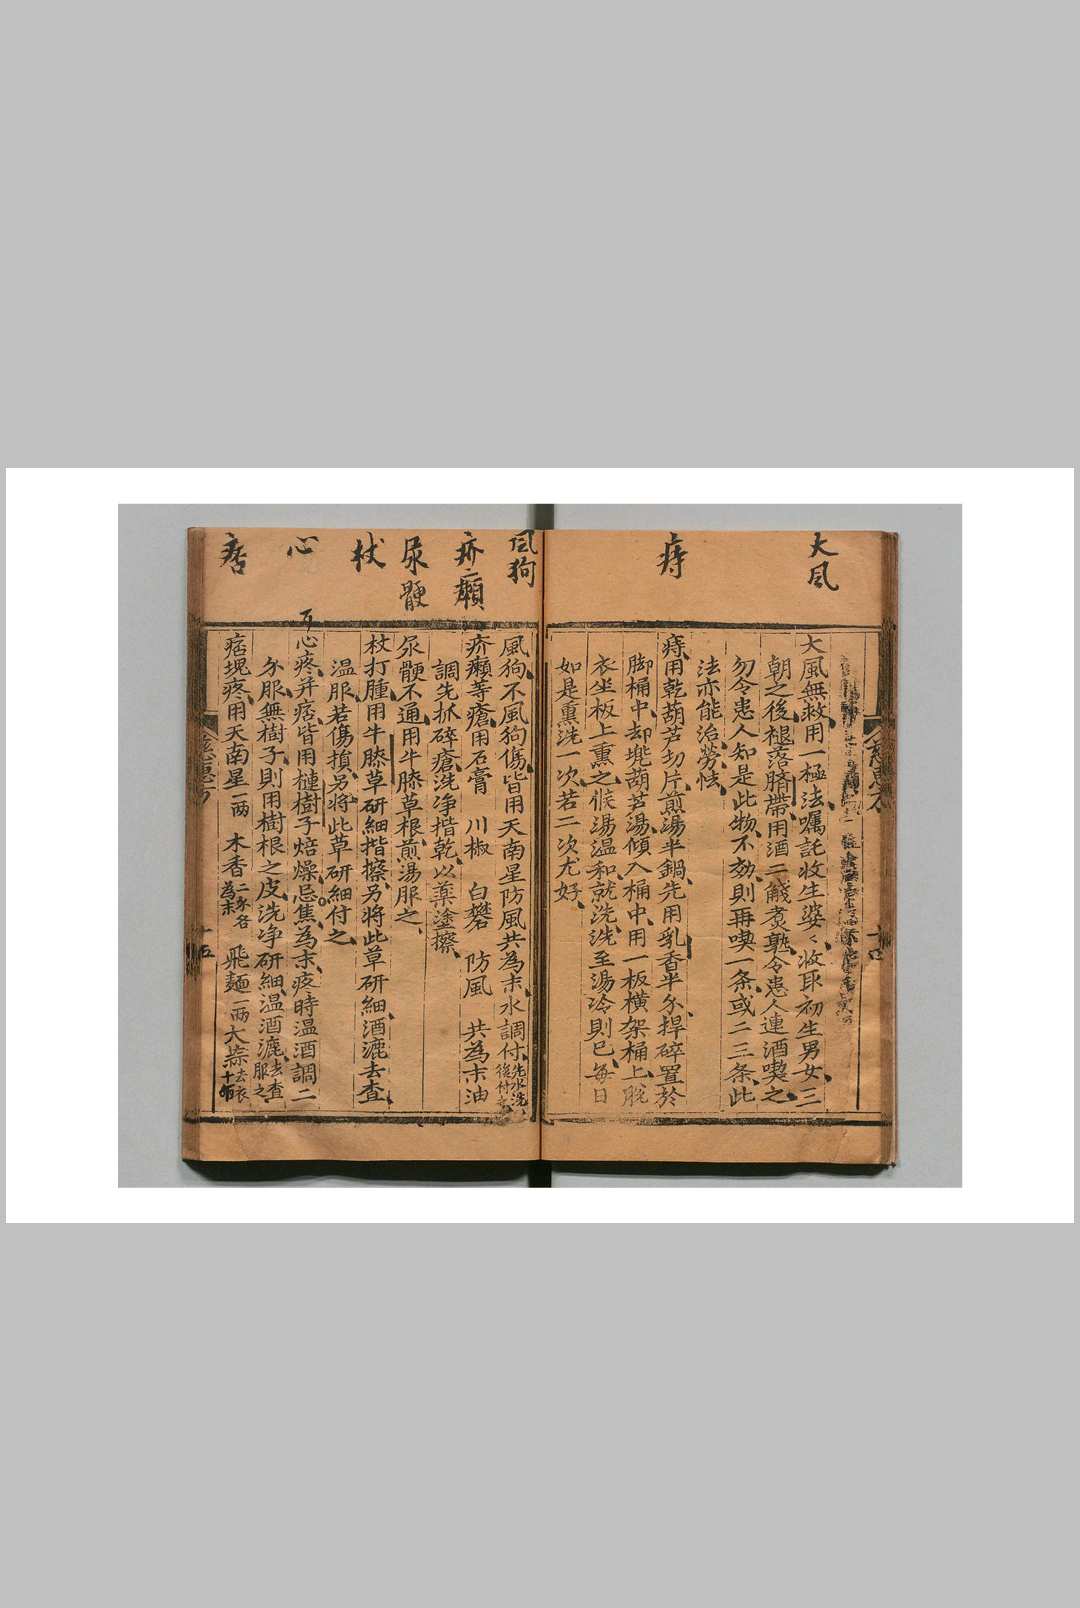 大風
痔
大風無救用一極法囑託收生婆々收取初生男女三
朝之後褪落臍帶用酒二觥煑熟令患人連酒喫之
勿令患人知是此物不効則再喫一条或二三条此
法亦能治勞怯
痔用乾葫芦切片煎湯半鍋先用乳香半分捍碎置於
脚桶中却堯葫芦湯傾入桶中用一板橫架桶上脫
衣坐板上熏之候湯温和就洗洗至湯冷則已每日
如是熏洗一次若二次尤好
十四
風狗
疥癩
尿髀
杖
心
痞
風狗不風狗傷皆用天南星防風共為末水調付先水洗後付之
疥癩等瘡用石膏 川椒 白礬 防風 共為末油
調先抓碎瘡洗净揩乾以藥塗擦
尿髀不通用牛膝草根煎湯服之
杖打腫用牛膝草研細揩擦另將此草研細酒漉去查
温服若傷損另將此草研細付之
心疼并痞皆用槤樹子焙燥忌焦為末疼時温酒調二
分服無樹子則用樹根之皮洗净研細温酒漉去查服之
痞塊疼用天南星一两 木香二分各為末 飛麵一两大蒜去衣十
慈惠方
十五